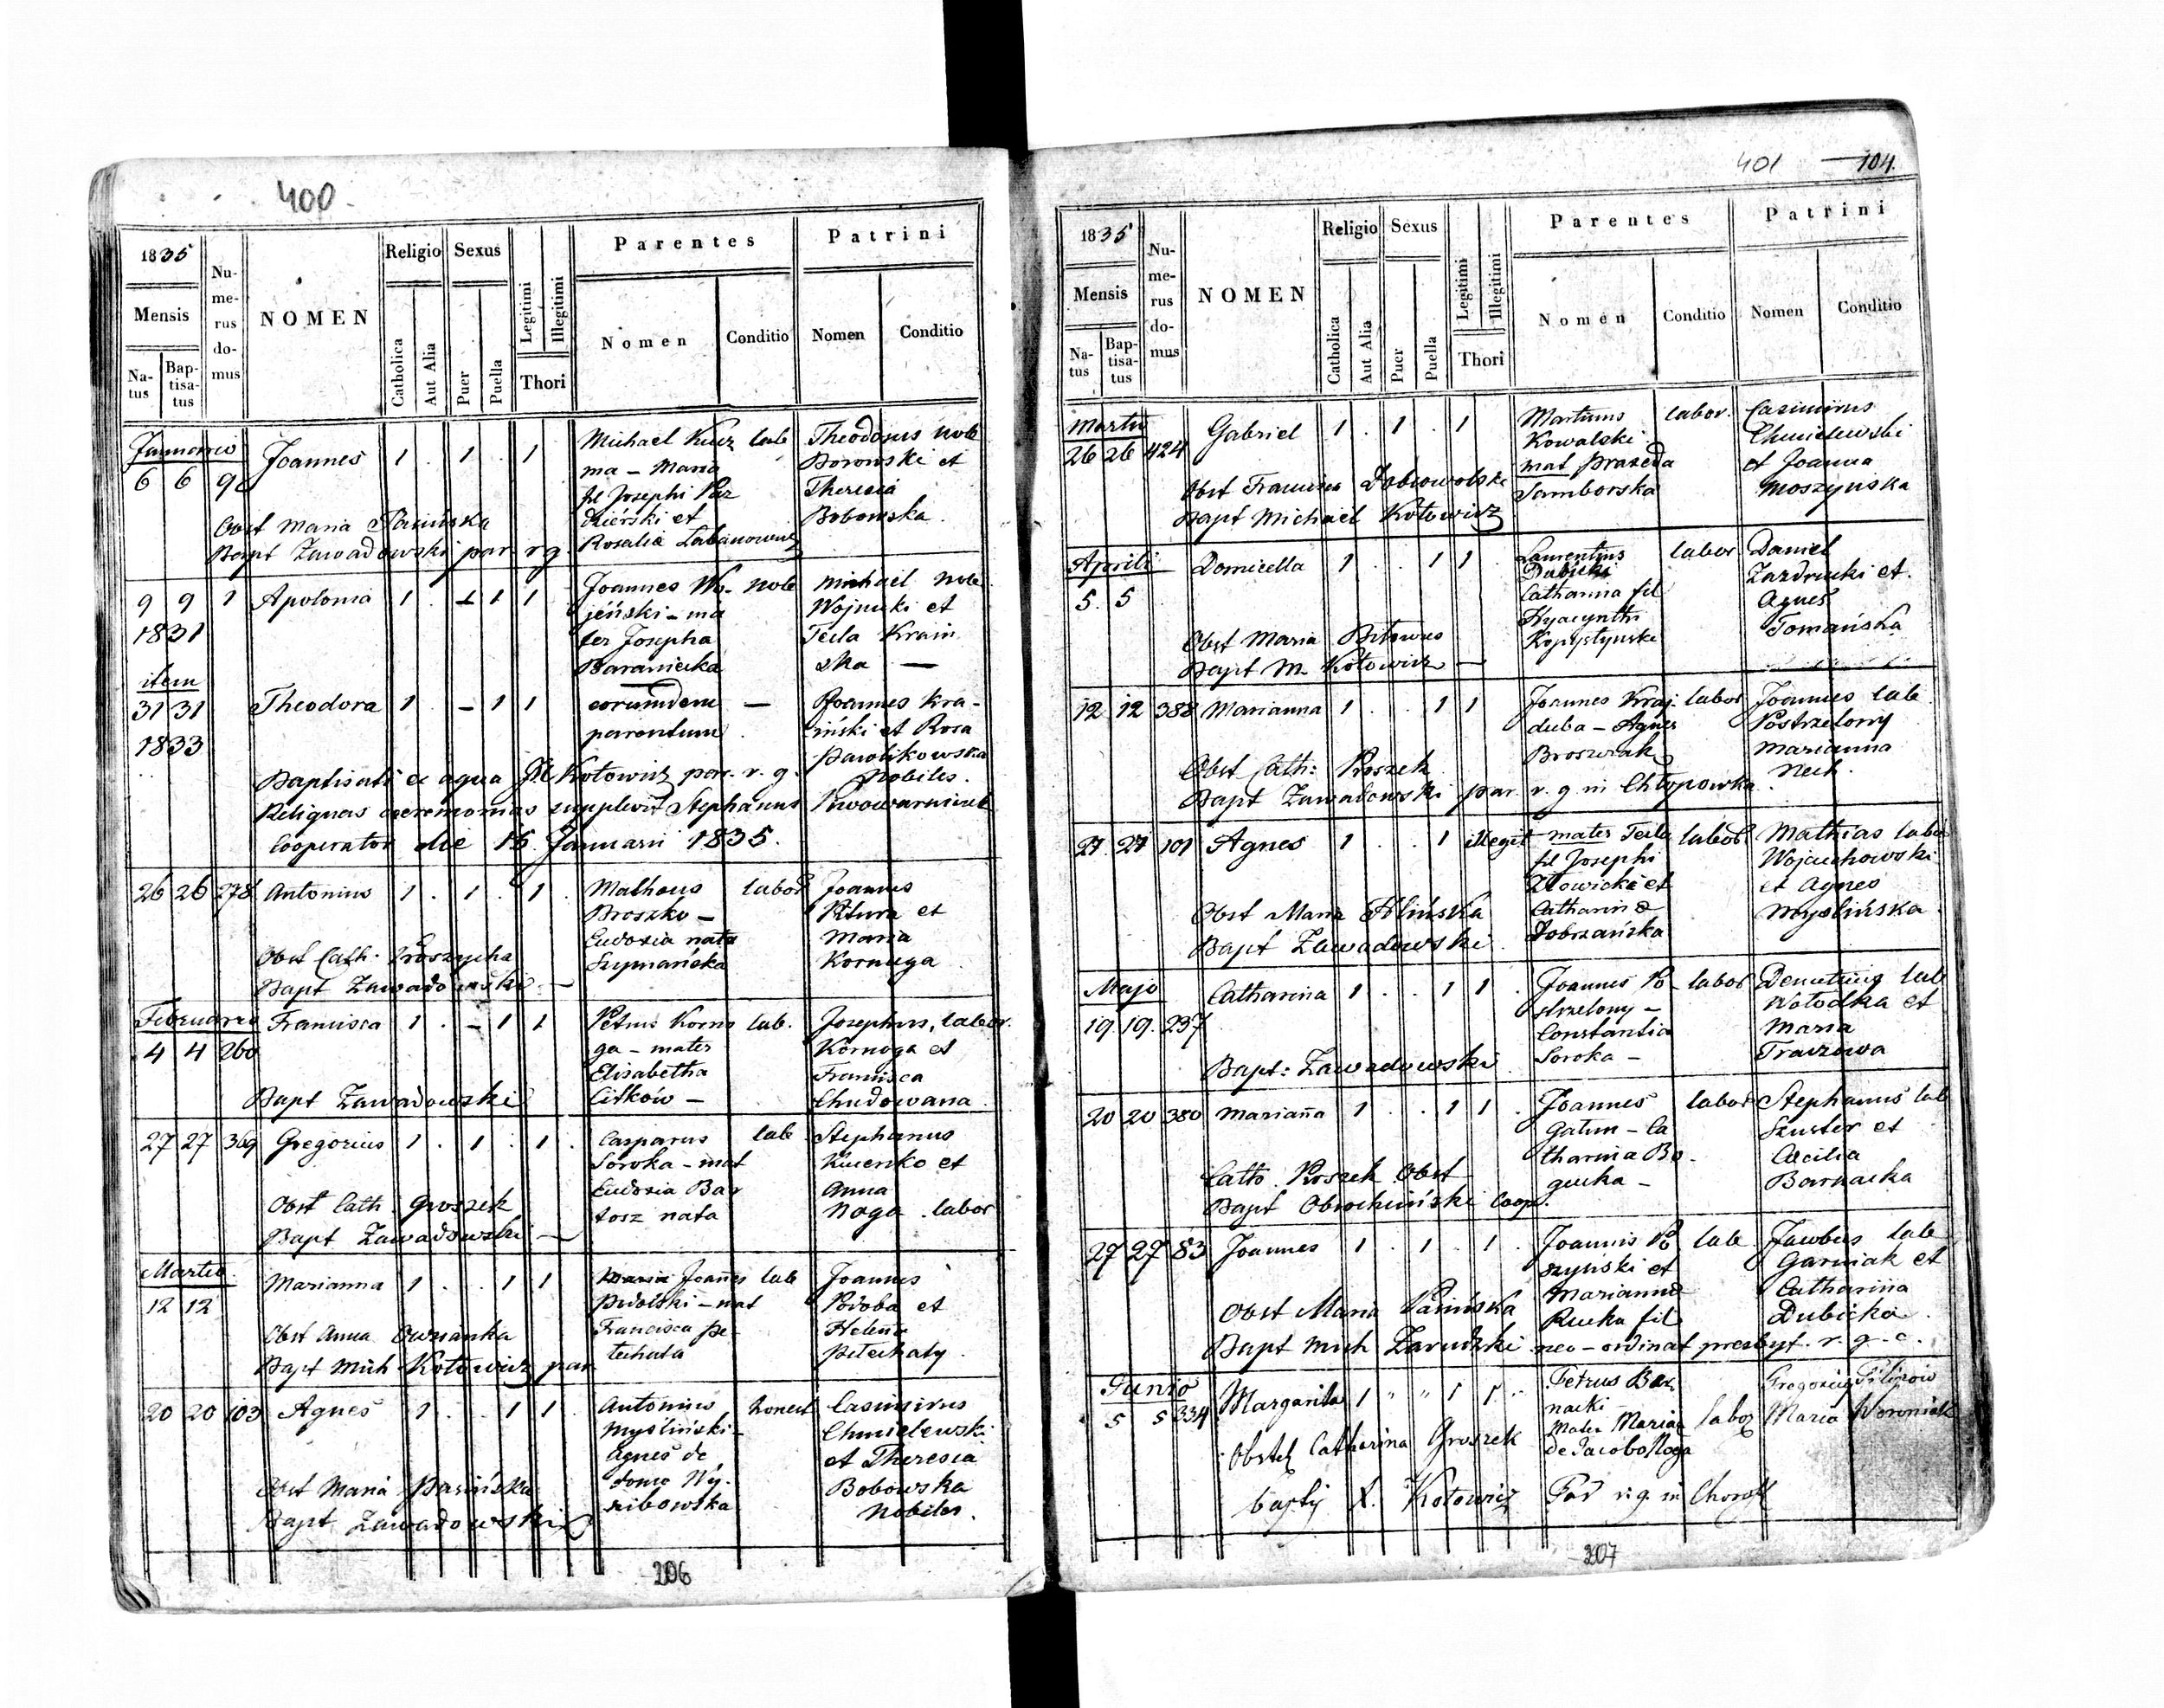 400
1835
Mensis
Na-
tus
Bap-
tisa-
tus
Nu-
me-
rus
do-
mus
NOMEN
Religio
Catholica
Aut Alia
Sexus
Puer
Puella
Legitimi
Illegitimi
Thori
Parentes
Nomen
Conditio
Patrini
Nomen
Conditio
Januario
6 6 90 Joannes 1 . 1 . 1 Michael Kucz lab Theodosius nob
ma - Maria Borowski et
fil Josephi Theresia
et Bobowska
Rosalia
Obst Maria
Bapt Zawadowski par r g
9 9 1 Apolonia 1 . 1 1 Joannes Wo- nob Michael nob
1831 jeński - ma Wojnicki et
ter Josepha Tecla Krain
Baraniecka ska —
item
31 31 Theodora 1 . - 1 1 eorumdem — Joannes Kra-
1833 parentum . iński et Rosa
Pawlikowska
nobiles.
Baptisati ex aqua Kołowicz par. r. g.
Reliquas ceremonias supplevit Stephanus
Cooperator die 15 Januarii 1835.
26 26 278 Antonius 1 . 1 . 1 Matheus labor Joannes
Broszko - Pitura et
Eudoxia nata Maria
Szymańska Kornuga
Obst Cath.
Bapt Zawadowski —
Februario
4 4 260 Francisca 1 . - 1 1 Petrus Kornu lab. Josephus, labor.
ga - mater Kornuga et
Elisabetha Francisca
Citków -
Bapt Zawadowski
27 27 369 Gregorius 1 . 1 . 1 . Casparus lab Stephanus
Soroka - mat et
Eudoxia Bar Anna
tosz nata Noga . labor
Obst Cath Groszek
Bapt Zawadowski —
Martio
12 12 Marianna 1 . . 1 1 Joannes lab Joannes
Podolski - mat Podoba et
Francisca Pe- Helena
techata Petechaty
Obst Anna
Bapt Mich Kołowicz par
20 20 103 Agnes 1 . . 1 1 Antonius honest Casimirus
Mysliński - Chmielewski
Agnes de et Theresia
domo Bobowska
Nobiles.
Obst Maria
Bapt Zawadowski
206
401 104.
1835
Mensis
Na-
tus
Bap-
tisa-
tus
Nu-
me-
rus
do-
mus
NOMEN
Religio
Catholica
Aut Alia
Sexus
Puer
Puella
Legitimi
Illegitimi
Thori
Parentes
Nomen
Conditio
Patrini
Nomen
Conditio
Martio
26 26 424 Gabriel 1 . 1 . 1 Martinus labor. Casimirus
Kowalski Chmielewski
mat Praxeda et Joanna
Samborska Moszyńska
Obst Francisca Dobrowolska
Bapt Michael Kołowicz
Aprili
5. 5 Domicella 1 . . 1 1 Laurentius labor Daniel
Dubicki et.
Catharina fil Agnes
Hyacynthi Tomańska
Kopystyński
Obst Maria
Bapt M. Kołowicz —
12 12 388 Marianna 1 . . 1 1 Joannes Kraj- labor Joannes lab
duba - Agnes Postrzelony
Broszczak Marianna
Nech.
Obst Cath: Proszek
Bapt Zawadowski par r. g in Chłopowka
27. 27 101 Agnes 1 . . 1 illegit mater Tecla labor Mathias labor
fil Josephi Wojciechowski
Złowicki et et Agnes
Catharina Myslińska.
Dobrzańska
Obst Maria
Bapt Zawadowski.
Majo
19. 19. 237 Catharina 1 . . 1 1 . Joannes Po- labor Demetrius lab
strzelony - Wołodka et
Constantia Maria
Soroka - Traczowa
Bapt: Zawadowski
20 20 380 Mariaña 1 . . 1 1 . Joannes labor Stephanus lab
Gatun - Ca Szuster et
tharina Bo- Cæcilia
gucka - Barnacka
Cath. Proszek Obst
Bapt Coop.
27 27 83 Joannes 1 . 1 . 1 . Joannis Po lab Jacobus lab
szyński et Garniak et
Marianna Catharina
Rucka fil Dubicka
Obst Maria
Bapt Mich Zarudzki neo-ordinat presbyt. r. g. c.
Junio
5 5 334 Margarita 1 " " 1 1 " Petrus Bar Gregorius Filipow
nacki
Mater Maria labor Maria Woroniak
de Jacobo Noga
Obstet Catharina Groszek
Kołowicz Par r. g. in
207